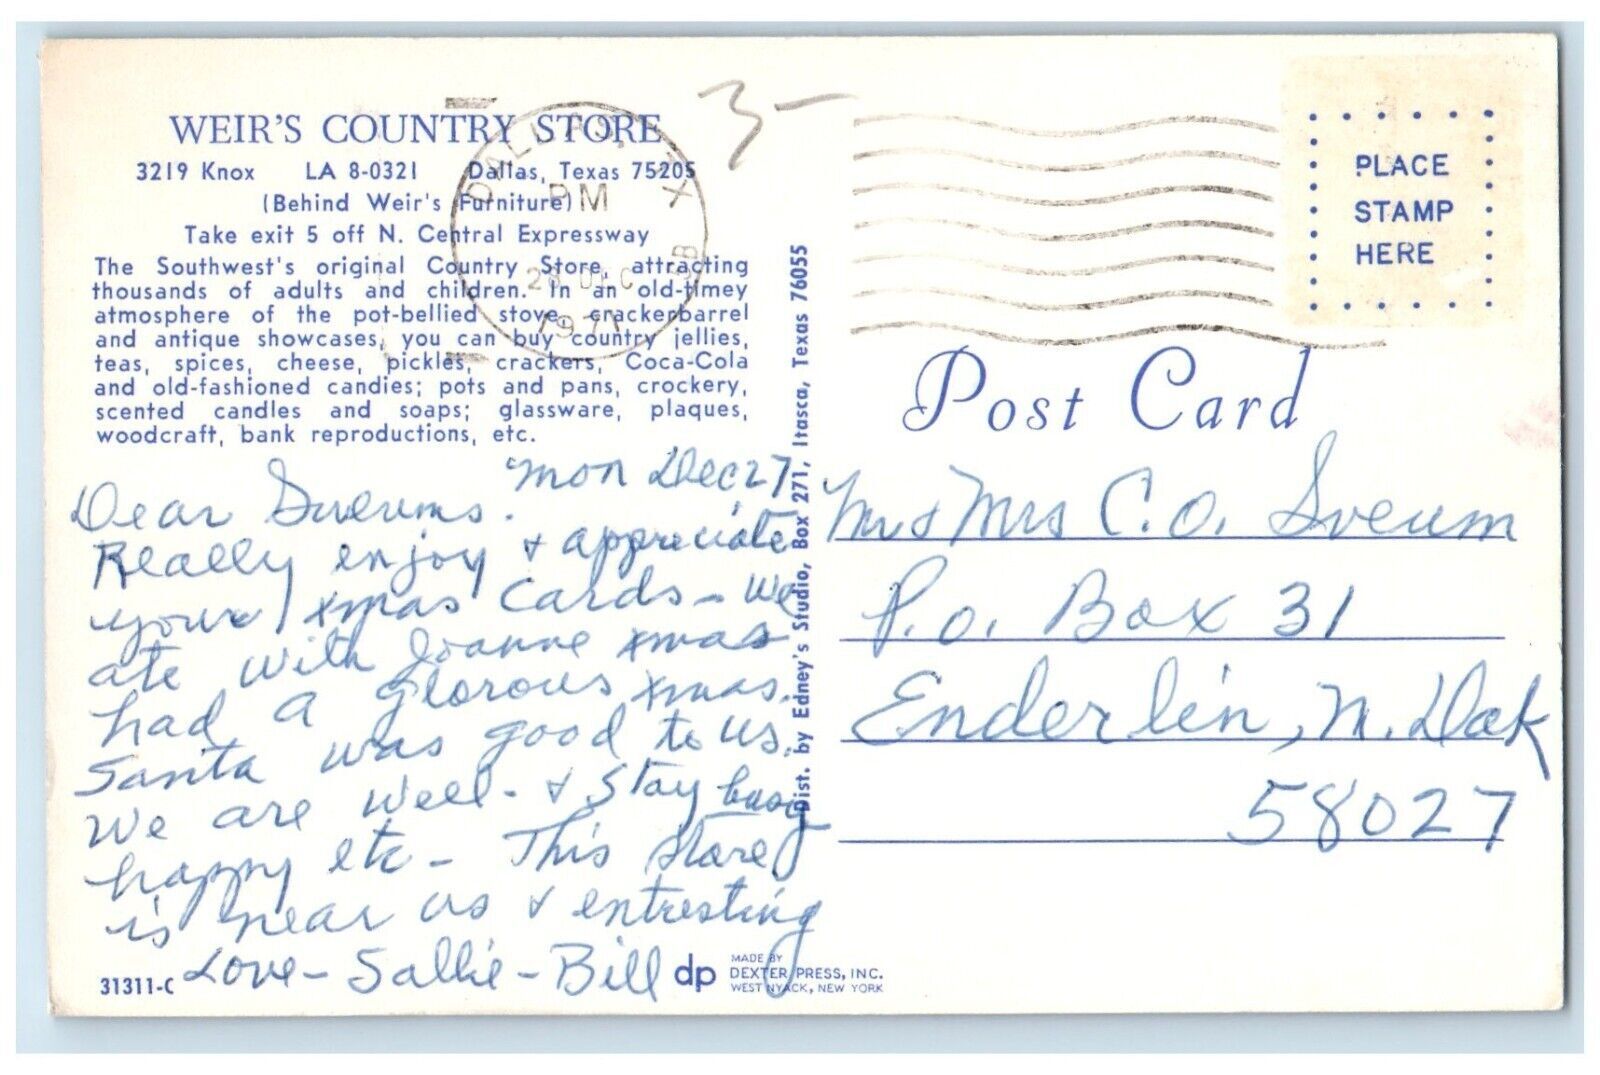 WEIR'S COUNTRY STORE
3219 Knox LA 8-0321 Dallas, Texas 75205
(Behind Weir's Furniture)
Take exit 5 off N. Central Expressway
The Southwest's original Country Store, attracting
thousands of adults and children. In an old-timey
atmosphere of the pot-bellied stove, crackerbarrel
and antique showcases, you can buy country jellies,
teas, spices, cheese, pickles, crackers, Coca-Cola
and old-fashioned candies; pots and pans, crockery,
scented candles and soaps; glassware, plaques,
woodcraft, bank reproductions, etc.
DALLAS, TX
PM
28 DEC
1971
3-
PLACE
STAMP
HERE
Post Card
Mon Dec 27
Dear Sveums.
Really enjoy & appreciate
your Xmas Cards - We
ate with Joanne Xmas
had a glorous Xmas.
Santa was good to us.
We are well - & stay busy
happy etc - This Store
is near us & entresting
Love - Sallie - Bill
Mr & Mrs C.O. Sveum
P.O. Box 31
Enderlin, N. Dak
58027
Dist. by Edney's Studio, Box 271, Itasca, Texas 76055
31311-C
dp
MADE BY
DEXTER PRESS, INC.
WEST NYACK, NEW YORK